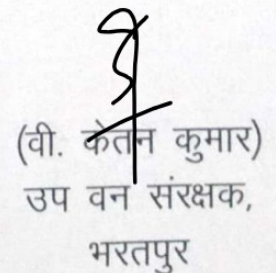 (वी. केतन कुमार)
उप वन संरक्षक,
भरतपुर